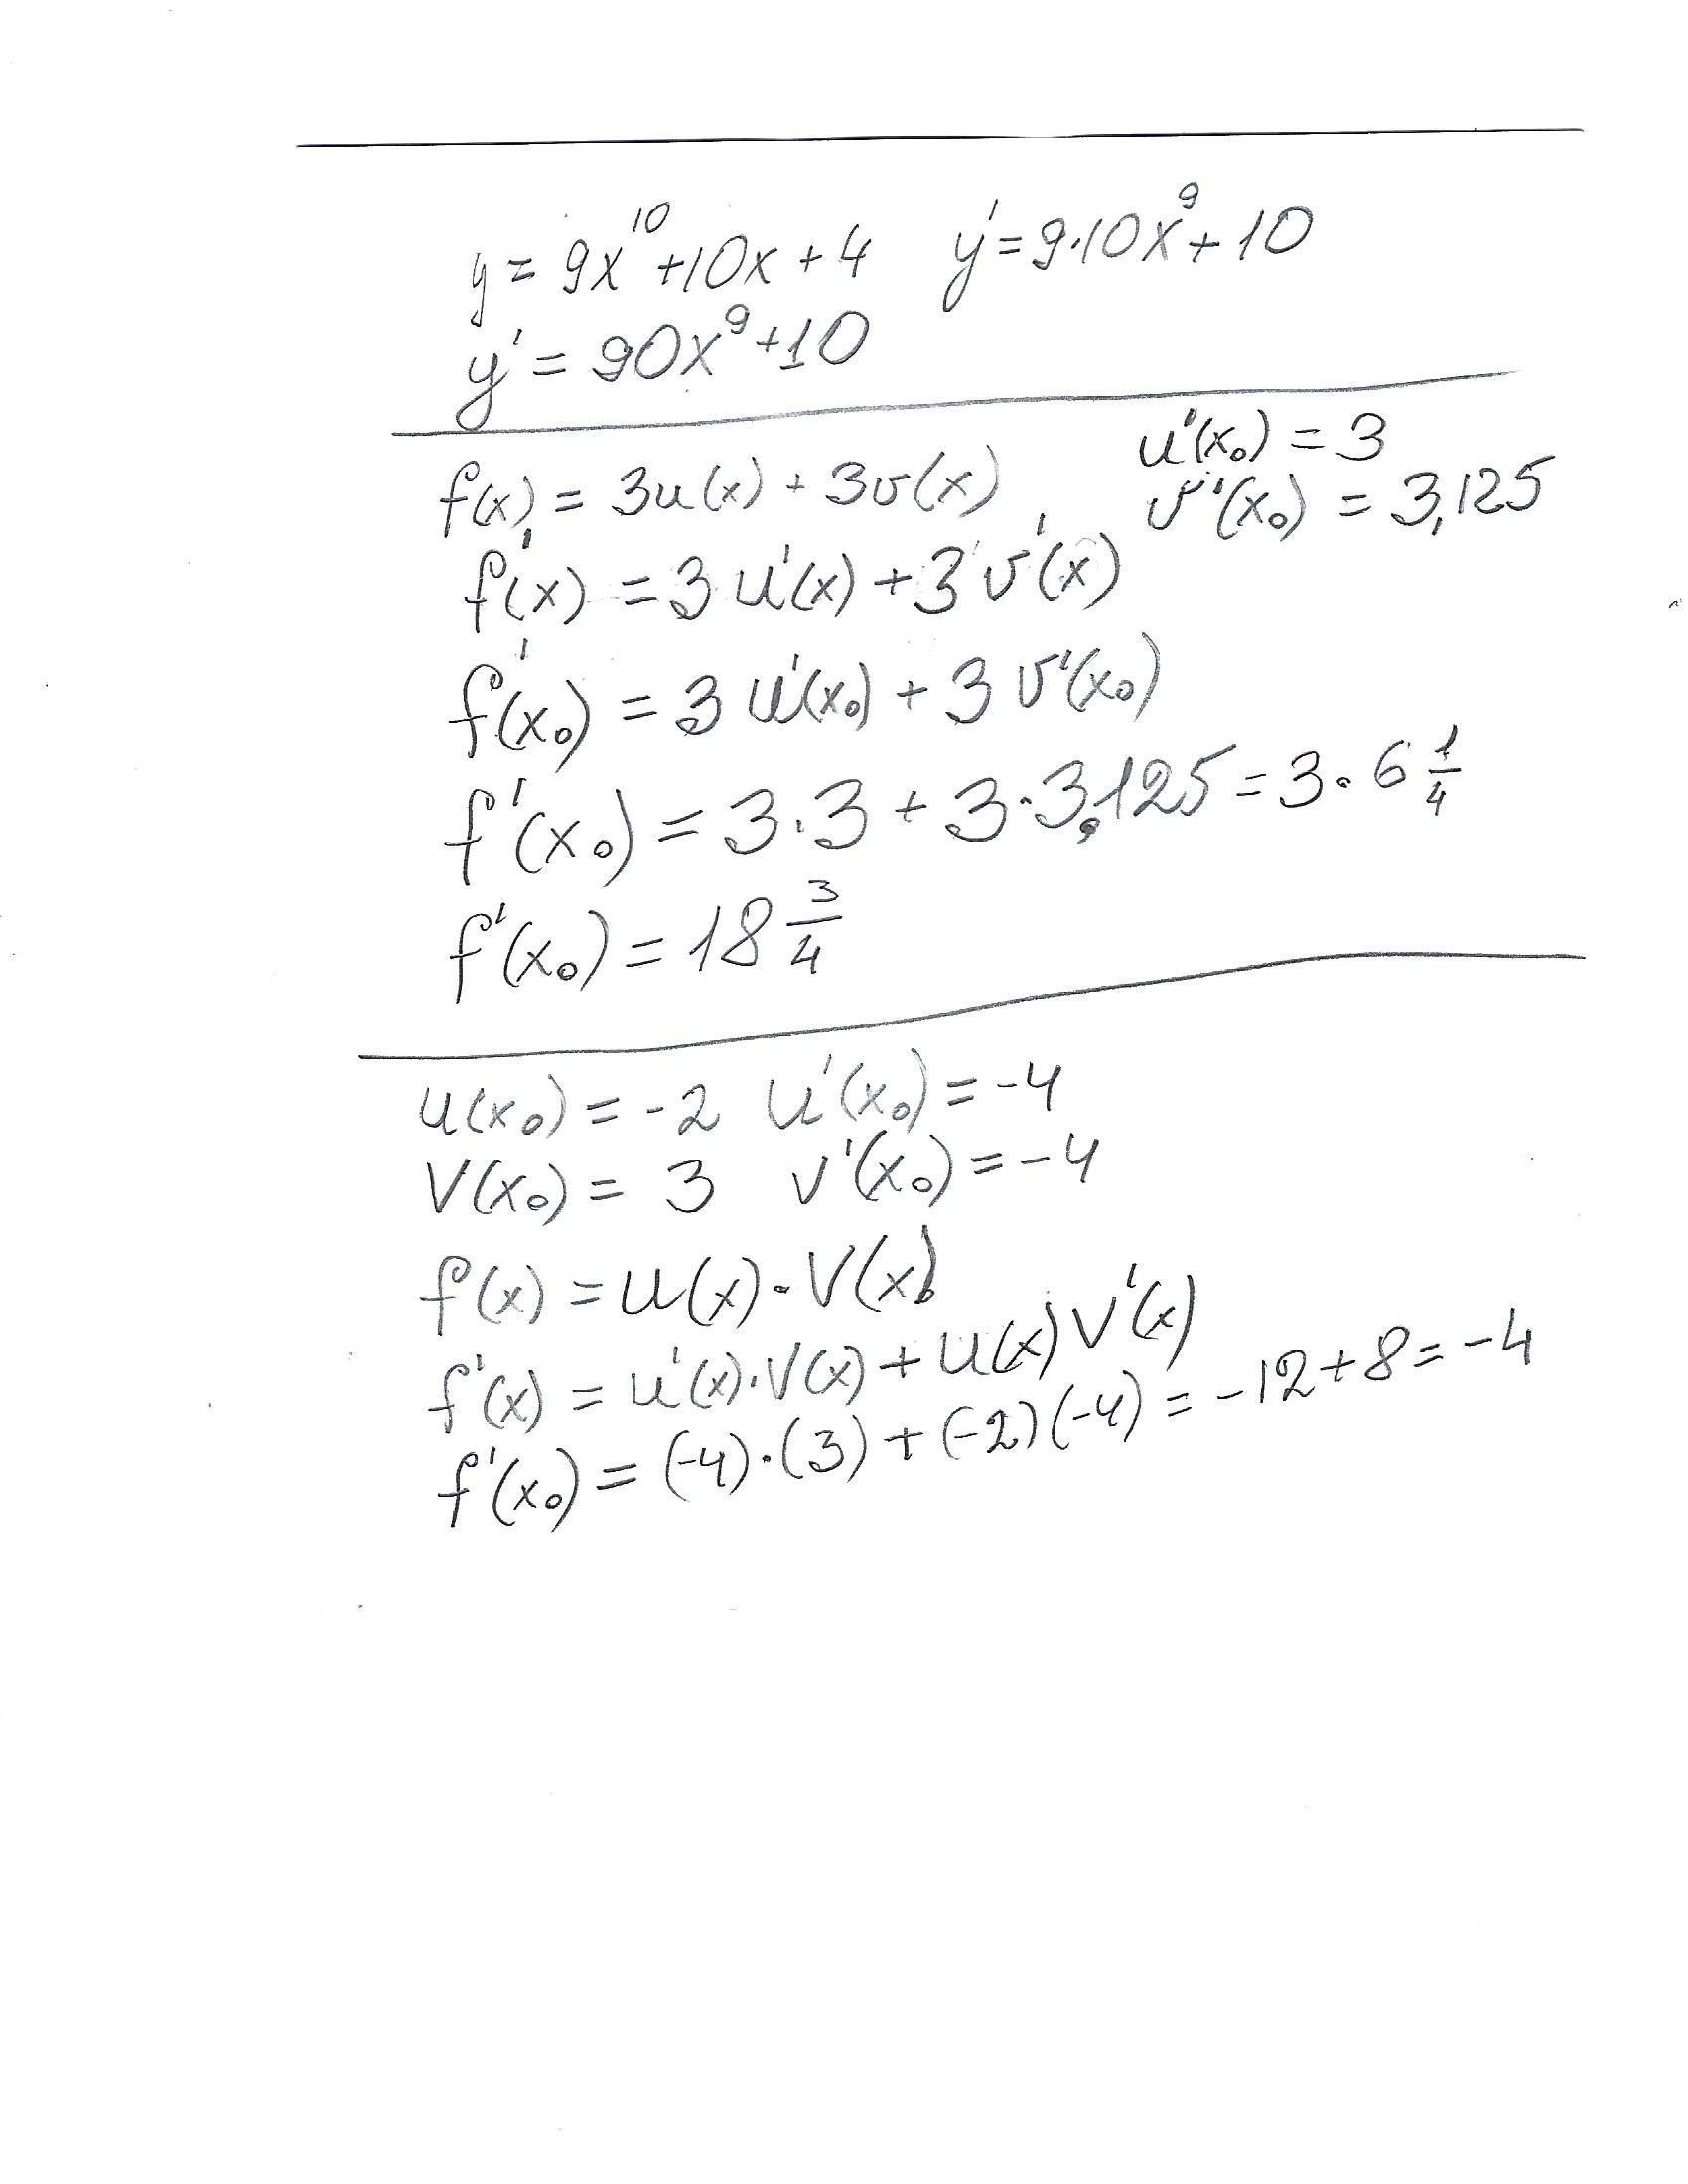 y = 9x¹⁰ + 10x + 4   y' = 9·10x⁹ + 10
y' = 90x⁹ + 10
f(x) = 3u(x) + 3v(x)   u'(x₀) = 3
v'(x₀) = 3,125
f'(x) = 3u'(x) + 3v'(x)
f'(x₀) = 3u'(x₀) + 3v'(x₀)
f'(x₀) = 3·3 + 3·3,125 = 3·6 1/4
f'(x₀) = 18 3/4
u(x₀) = -2   u'(x₀) = -4
V(x₀) = 3   v'(x₀) = -4
f(x) = u(x)·V(x)
f'(x) = u'(x)·V(x) + u(x)V'(x)
f'(x₀) = (-4)·(3) + (-2)(-4) = -12 + 8 = -4